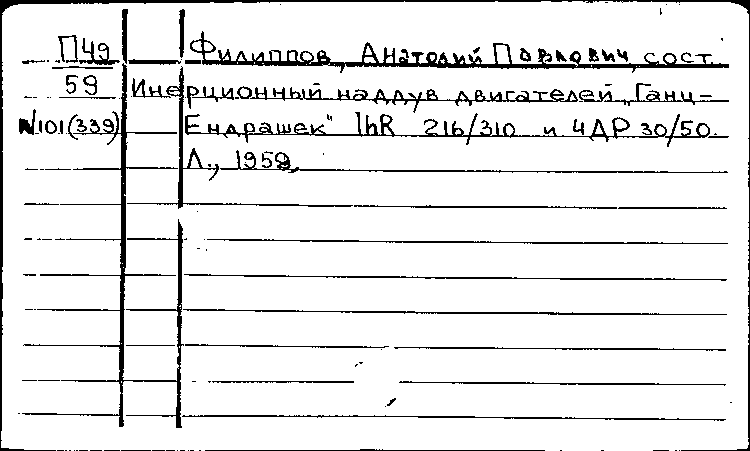 П49 Филиппов, Анатолий Павлович, сост.
59 Инерционный наддув двигателей „Ганц-
№101(339) Ендрашек" IhR 216/310 и 4ДР 30/50.
Л., 1959.